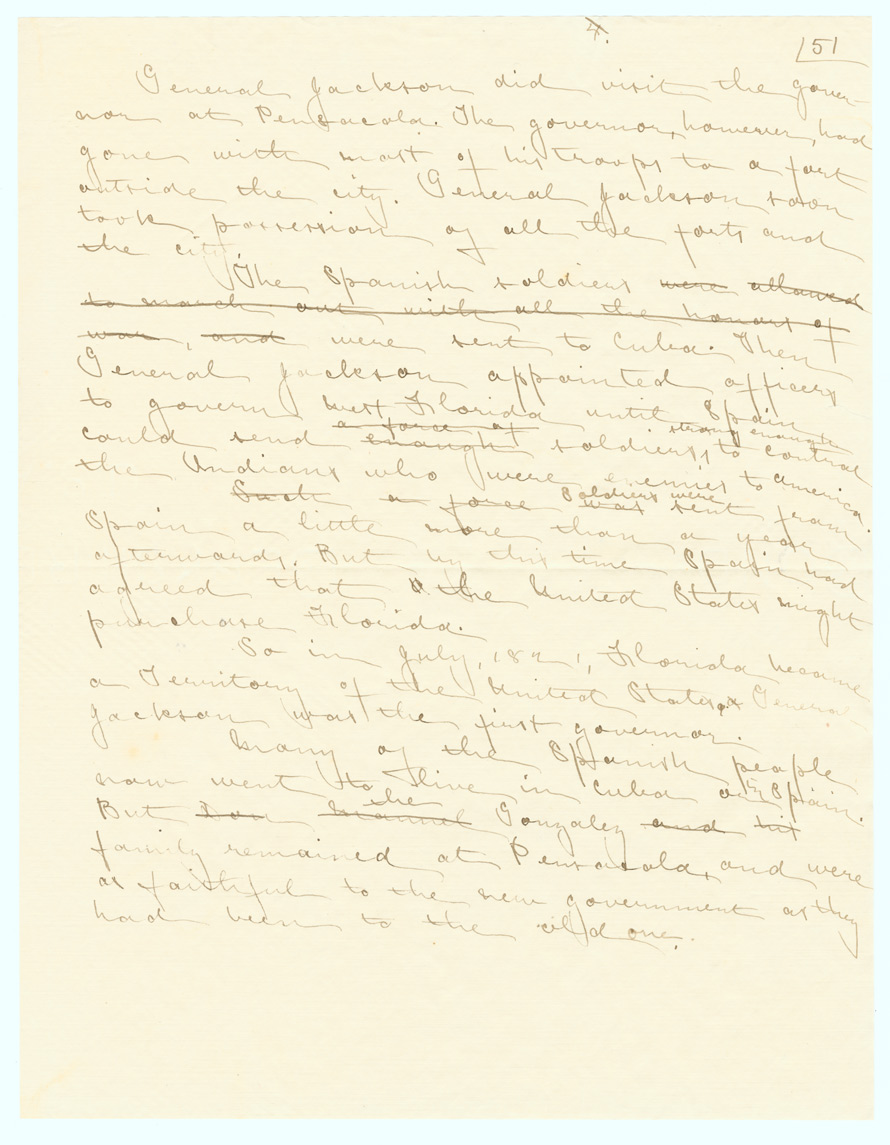 4.
5
General Jackson did visit the gover-
nor at Pensacola. The governor, however, had
gone with most of his troops to a fort
outside the city. General Jackson soon
took possession of all the forts and
the city.
The Spanish soldiers were allowed
to march out with all the honors of
war, and were sent to Cuba. Then
General Jackson appointed officers
to govern West Florida until Spain
a force of strong enough
could send enough soldiers, to control
the Indians who were enemies to America.
Such a force soldiers were was sent from
Spain a little more than a year
afterwards. But by this time Spain had
agreed that the United States might
purchase Florida.
So in July, 1821, Florida became
a Territory of the United States. General
Jackson was the first governor.
Many of the Spanish people
now went to live in Cuba or in Spain.
the
But Don Manuel Gonzalez and his
family remained at Pensacola, and were
as faithful to the new government as they
had been to the old one.